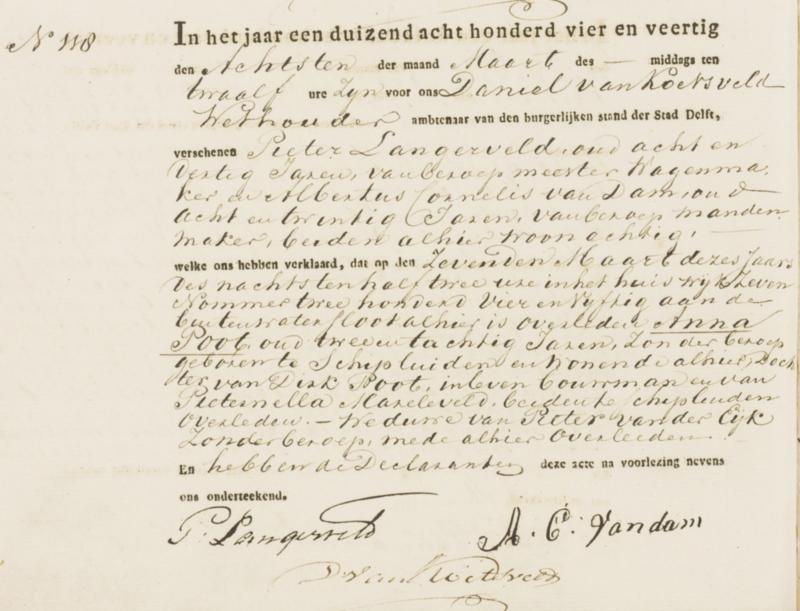 N° 118
In het jaar een duizend acht honderd vier en veertig
den Achtsten der maand Maart des — middags ten
twaalf ure Zyn voor ons Daniel van Koetsveld
Wethouder ambtenaar van den burgerlijken stand der Stad Delft,
verschenen Pieter Langerveld, oud acht en
dertig Jaren, van beroep meester Wagenma-
ker en Albertus Cornelis van Dam, oud
acht en twintig Jaren, van beroep manden
maker, beiden alhier woonachtig, —
welke ons hebben verklaard, dat op den Zevenden Maart dezes Jaars
des nachts ten half twee ure in het huis wijk Zeven
Nommer twee honderd vier en vyftig aan de
buitenwatersloot alhier is overleden Anna
Poot, oud twee en tachtig Jaren, Zonder beroep
geboren te Schipluiden en wonende alhier, Doch
ter van Dirk Poot, in leven bouwman en van
Pieternella Maxeleveld, beide te schipluiden
overleden. — Weduwe van Pieter van der Eijk
Zonder beroep, mede alhier overleden.
En hebben de Declaranten deze acte na voorlezing nevens
ons onderteekend.
P. Langerveld A. C. Van dam